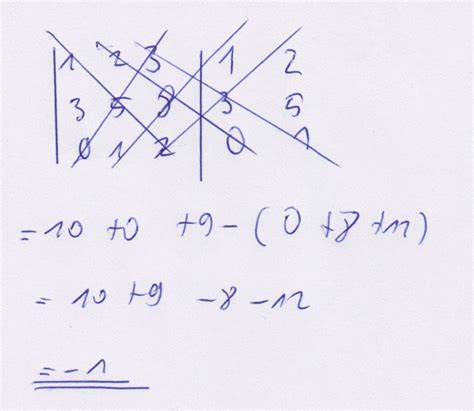 1 2 3 | 1 2
3 5 8 | 3 5
0 1 2 | 0 1
=10 +0 +9-(0+8+11)
= 10 +9 -8-12
=-1